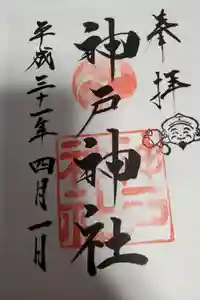 奉拝
神戸神社
平成三十一年四月一日